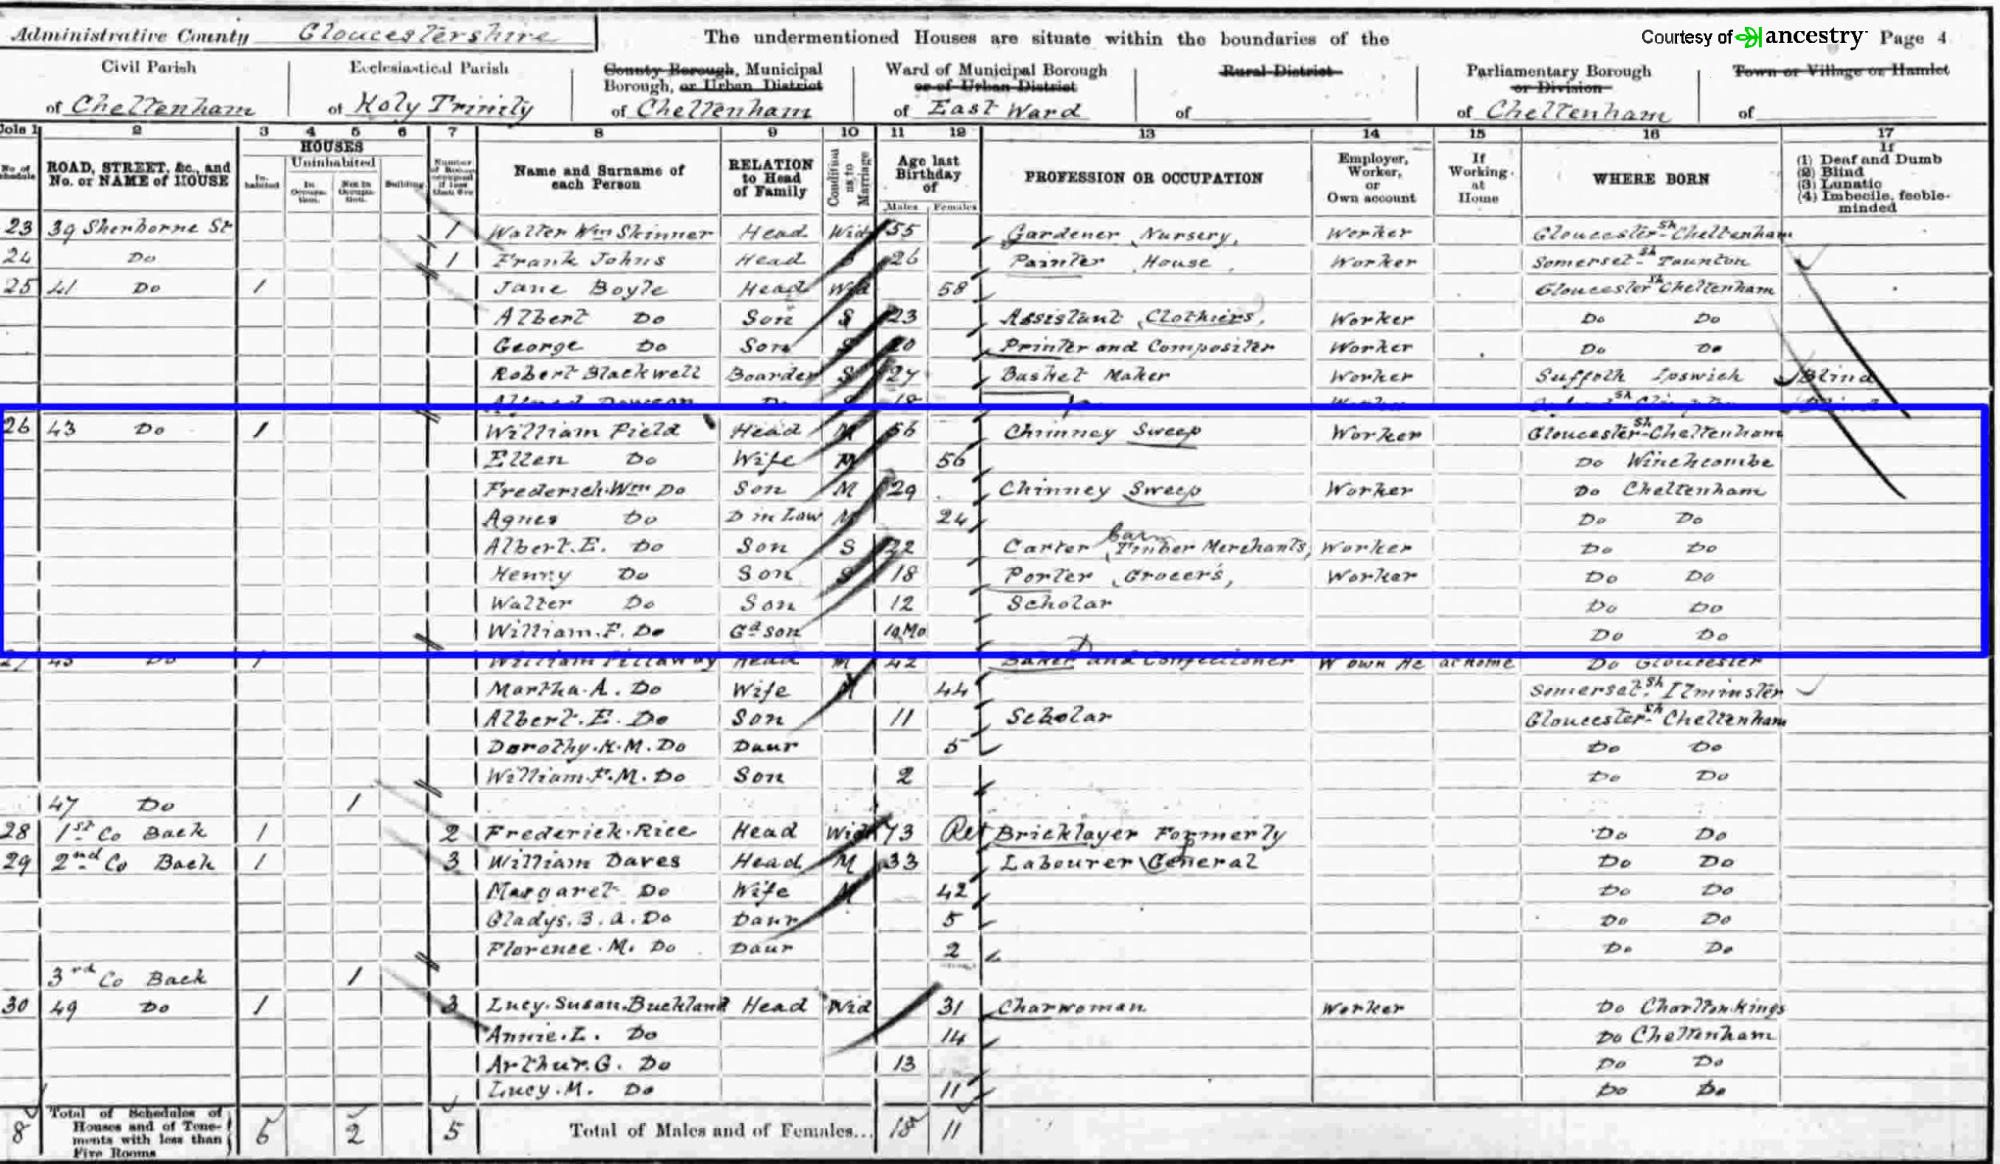 Administrative County Gloucestershire The undermentioned Houses are situate within the boundaries of the Courtesy of ancestry Page 4
Civil Parish Ecclesiastical Parish County Borough, Municipal Ward of Municipal Borough Rural District Parliamentary Borough Town or Village or Hamlet
Borough, or Urban District or of Urban District or Division
of Cheltenham of Holy Trinity of Cheltenham of East Ward of of Cheltenham of
Cols 1 2 3 4 5 6 7 8 9 10 11 12 13 14 15 16 17
No of Schedule ROAD, STREET, &c., and No. or NAME of HOUSE HOUSES Inhabited Uninhabited In Occupation. Not in Occupation. Building Number of Rooms occupied if less than five Name and Surname of each Person RELATION to Head of Family Condition as to Marriage Age last Birthday of Males Females PROFESSION OR OCCUPATION Employer, Worker, or Own account If Working at Home WHERE BORN If (1) Deaf and Dumb (2) Blind (3) Lunatic (4) Imbecile, feeble-minded
23 39 Sherborne St 1 Walter Wm Skinner Head Wid 55 Gardener, Nursery, Worker Gloucester-sh Cheltenham
24 Do 1 Frank Johns Head 26 Painter, House, Worker Somerset-sh Taunton
25 41 Do 1 Jane Boyle Head Wid 58 Gloucester sh Cheltenham
Albert Do Son S 23 Assistant, Clothiers, Worker Do Do
George Do Son S 20 Printer and Compositer Worker Do Do
Robert Blackwell Boarder S 27 Basket Maker Worker Suffolk Ipswich Blind
26 43 Do 1 William Field Head M 56 Chimney Sweep Worker Gloucester-sh Cheltenham
Ellen Do Wife M 56 Do Winchcombe
Frederick Wm Do Son M 29 Chimney Sweep Worker Do Cheltenham
Agnes Do D in Law M 24 Do Do
Albert.E. Do Son S 22 Carter, Timber Merchants, Worker Do Do
Henry Do Son S 18 Porter, Grocer's, Worker Do Do
Walter Do Son 12 Scholar Do Do
William.F. Do Gd son 10 Mo Do Do
27 45 Do 1 William Head M 42 Baker and Confectioner at home Do Gloucester
Martha.A. Do Wife M 44 Somerset-sh Ilminster
Albert.E. Do Son 11 Scholar Gloucester-sh Cheltenham
Dorothy.K.M. Do Daur 5 Do Do
William.F.M. Do Son 2 Do Do
47 Do 1
28 1st Co Back 1 2 Frederick Rice Head Wid 73 Ret Bricklayer Formerly Do Do
29 2nd Co Back 1 3 William Daves Head M 33 Labourer General Do Do
Margaret Do Wife M 42 Do Do
Gladys.B.A. Do Daur 5 Do Do
Florence.M. Do Daur 2 Do Do
3rd Co Back 1
30 49 Do 1 3 Lucy.Susan.Buckland Head Wid 31 Charwoman Worker Do Charlton Kings
Annie.L. Do 14 Do Cheltenham
Arthur.G. Do 13 Do Do
Lucy.M. Do 11 Do Do
8 Total of Schedules of Houses and of Tenements with less than Five Rooms 6 2 5 Total of Males and of Females... 18 11